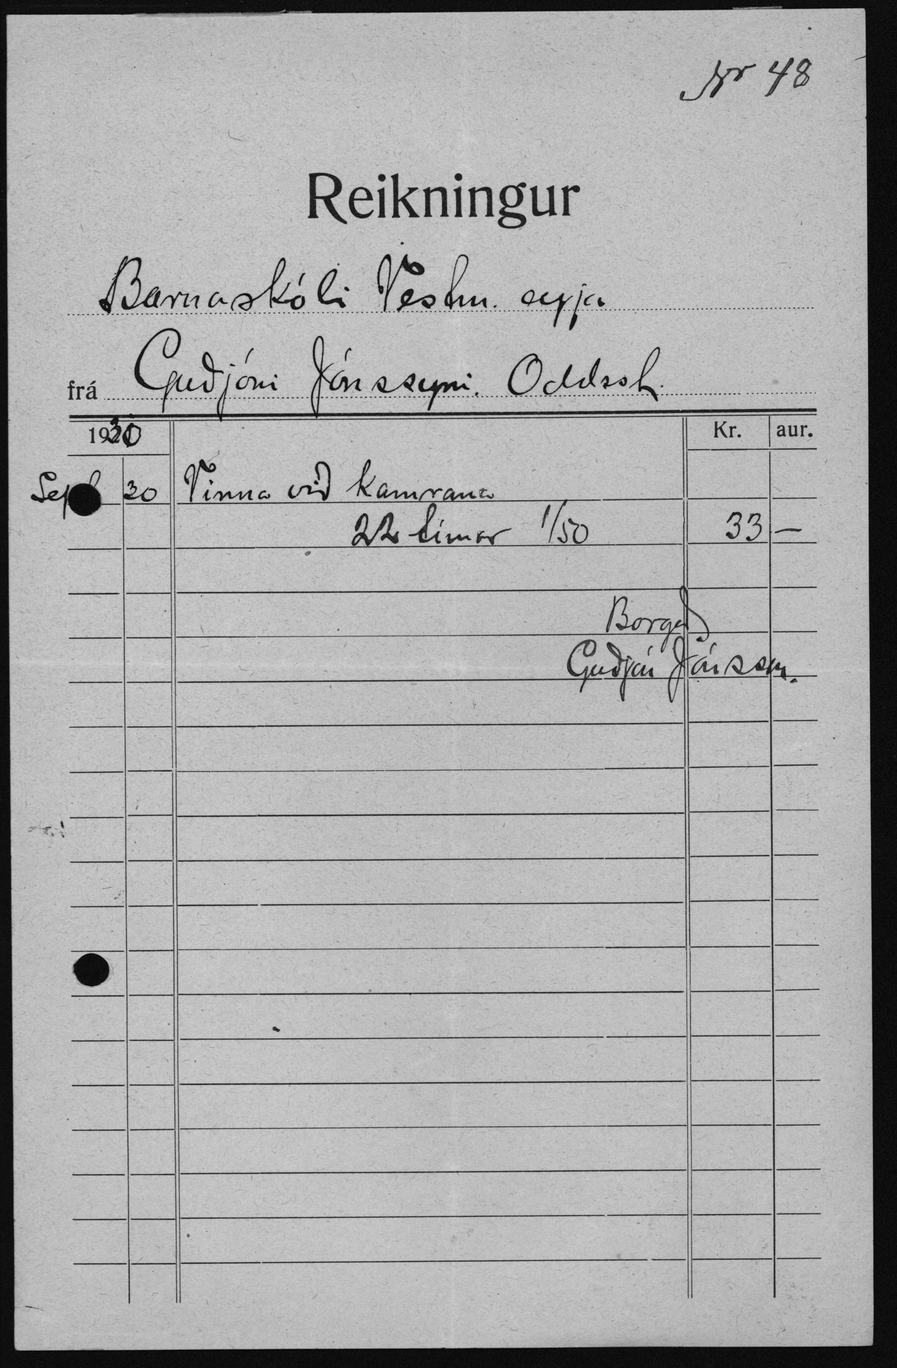 Nr 48
Reikningur
Barnaskóli Vestm. eyja
frá Guðjóni Jónssyni. Oddsst.
1930 Kr. aur.
Sept 30 Vinna við kamrana
22 tímar 1/50 33 —
Borgað
Guðjón Jónsson.